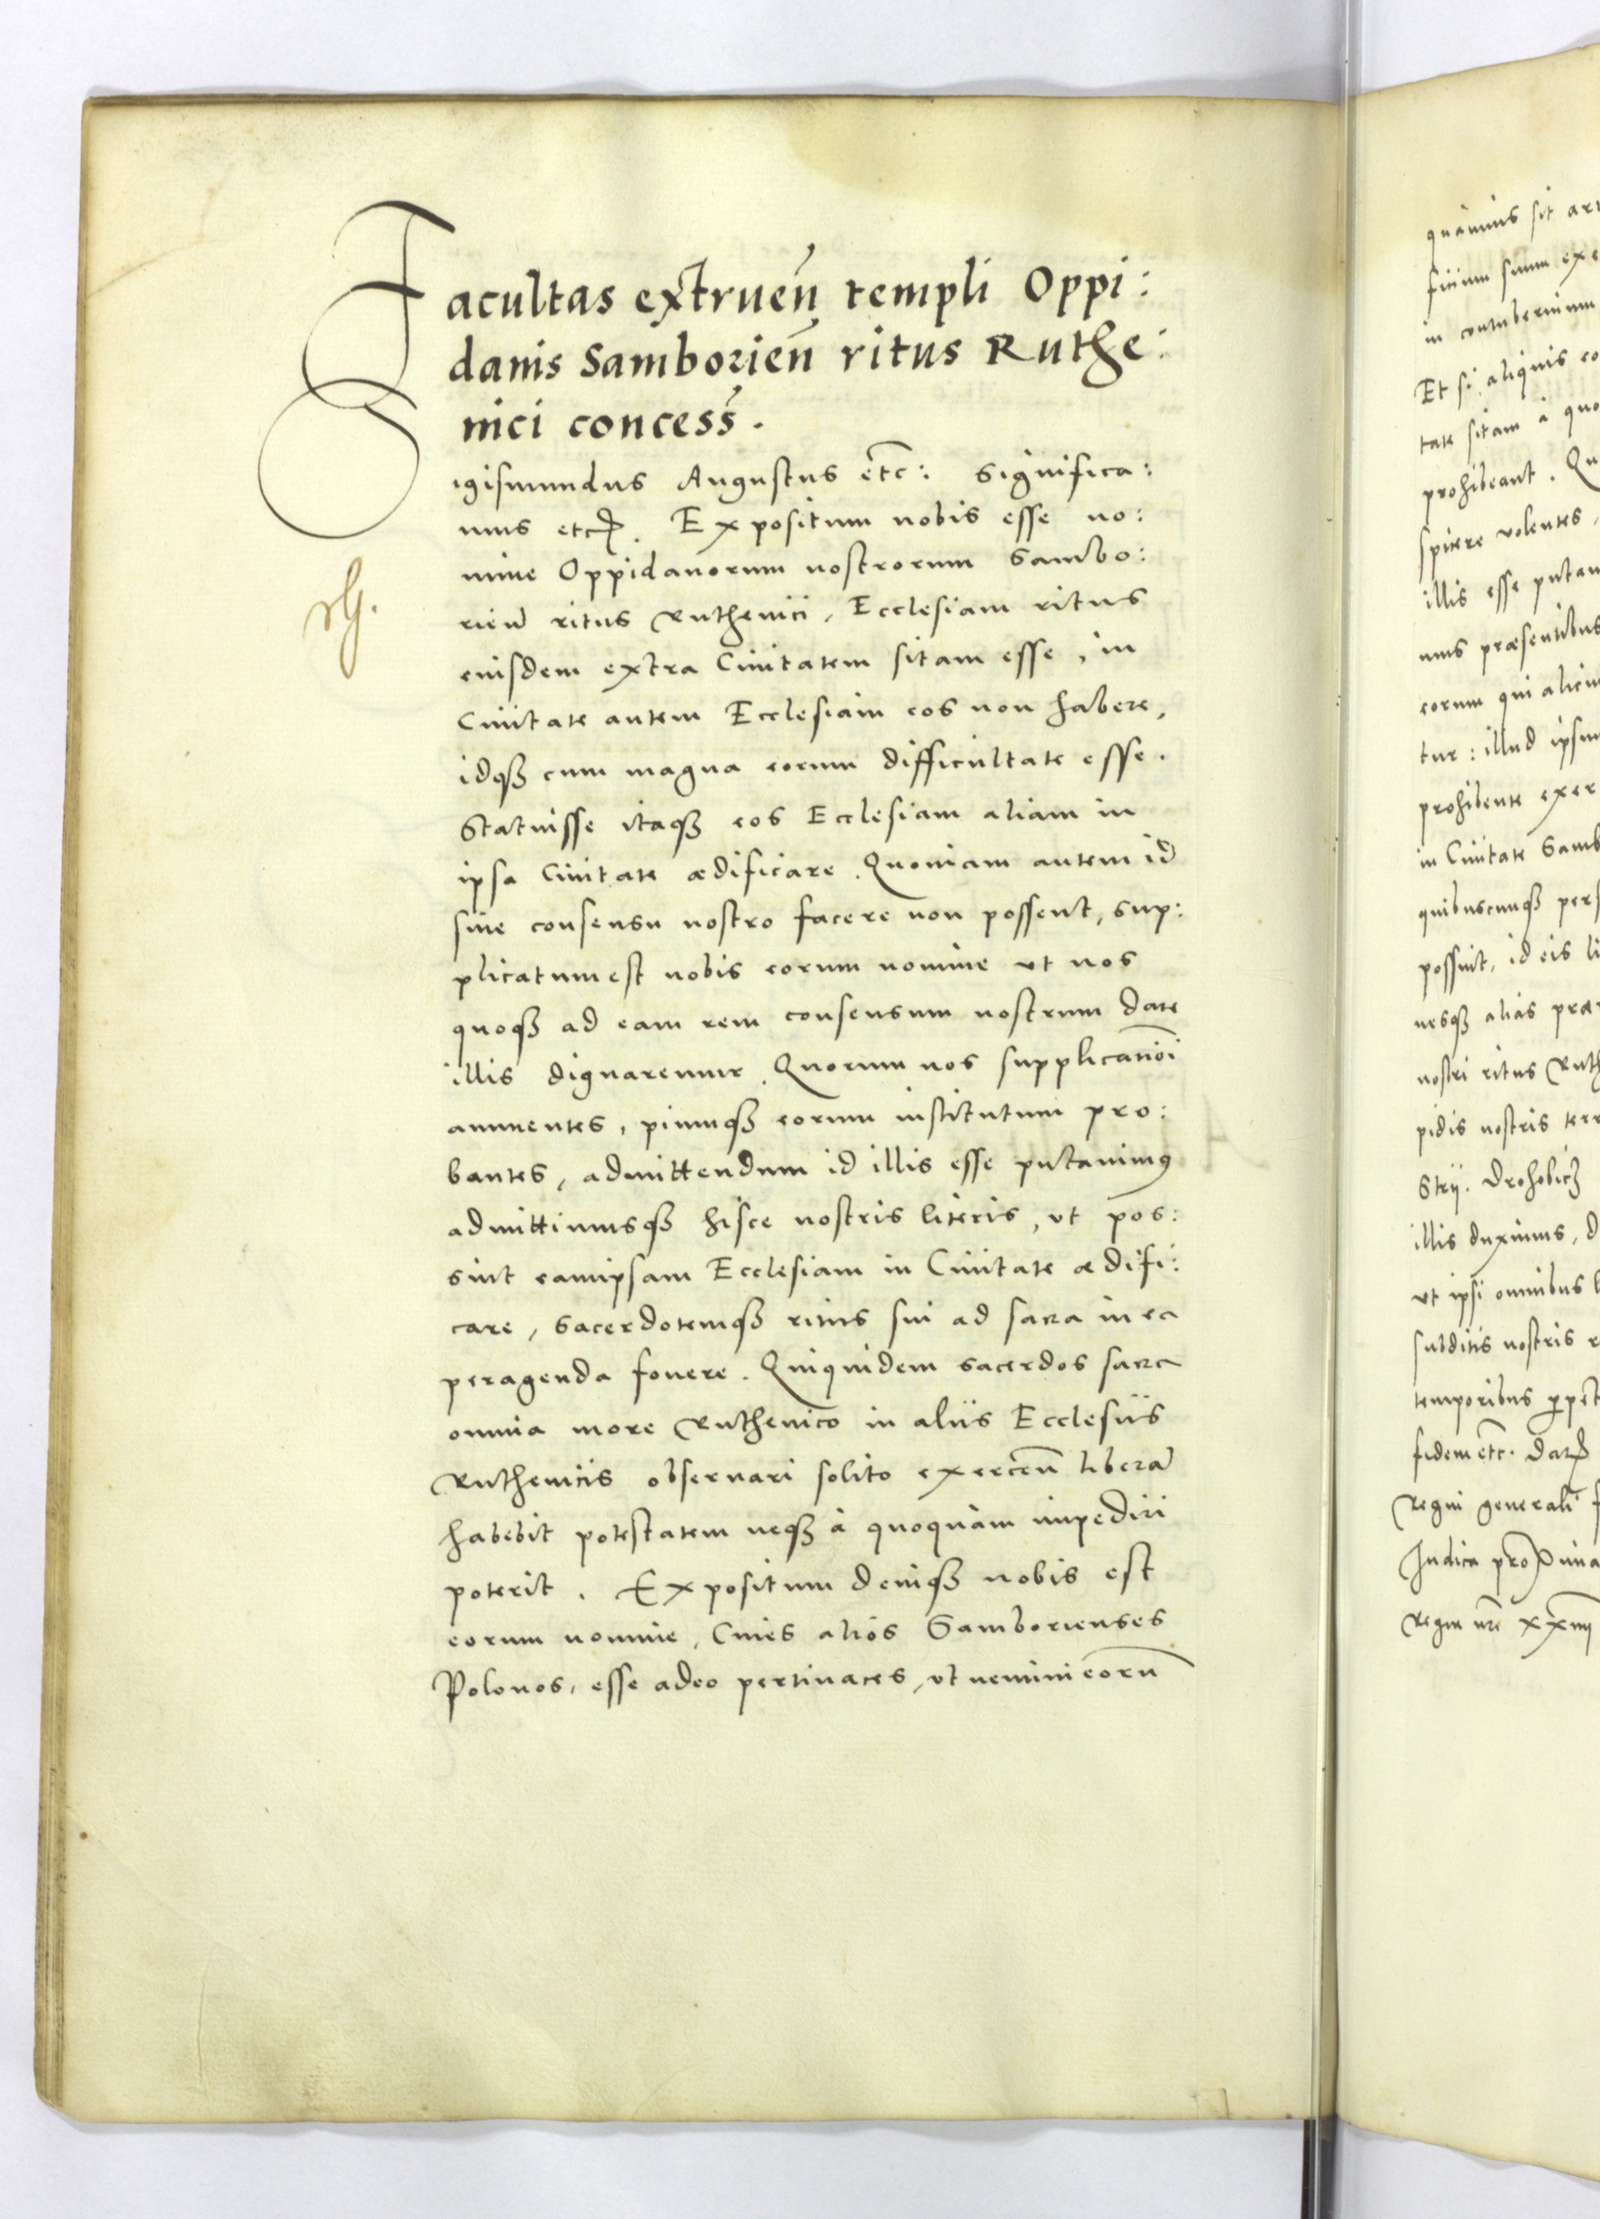 Facultas extruen̄ templi Oppi:
danis Samborien̄ ritus Ruthe:
nici concess̄.
Sigismundus Augustus etc: Significa:
mus etc. Expositum nobis esse no:
mine Oppidanorum nostrorum Sambo:
rien̄ ritus Ruthenici, Ecclesiam ritus
eiusdem extra Ciuitatem sitam esse, in
Ciuitate autem Ecclesiam eos non habere,
idq̃ cum magna eorum difficultate esse.
Statuisse itaq̃ eos Ecclesiam aliam in
ipsa Ciuitate ædificare. Quoniam autem id
sine consensu nostro facere non possent, sup:
plicatum est nobis eorum nomine vt nos
quoq̃ ad eam rem consensum nostrum dare
illis dignaremur. Quorum nos supplicatioi
annuentes, piumq̃ eorum institutum pro:
bantes, admittendum id illis esse putauimꝰ
admittimusq̃ hisce nostris literis, vt pos:
sint eamipsam Ecclesiam in Ciuitate ædifi:
care, Sacerdotemq̃ ritus sui ad sacra in ea
peragenda fouere. Quiquidem sacerdos sacra
omnia more Ruthenico in aliis Ecclesiis
Ruthenicis obseruari solito exercen̄ liberā
habebit potestatem neq̃ à quoquàm impediri
poterit. Expositum deniq̃ nobis est
eorum nomine, Ciues aliós Samborienses
Polonos, esse adeo pertinaces, vt nemini eorū
quàmuis sit
ficium suum
in contubernium
Et si aliquis
tate sitam à
prohibeant.
spicere volentes,
illis esse
mus præsentibus
eorum qui
tur: illud
prohibente
in Ciuitate
quibuscunq̃
possint, id eis
nesq̃ aliàs
nostri ritus
pidis nostris
Stryi. Drohobicz
illis duximus,
vt ipsi omnibus
subditis nostris
temporibus
fidem etc. Dat
regni generali
Iudica
Regni nri